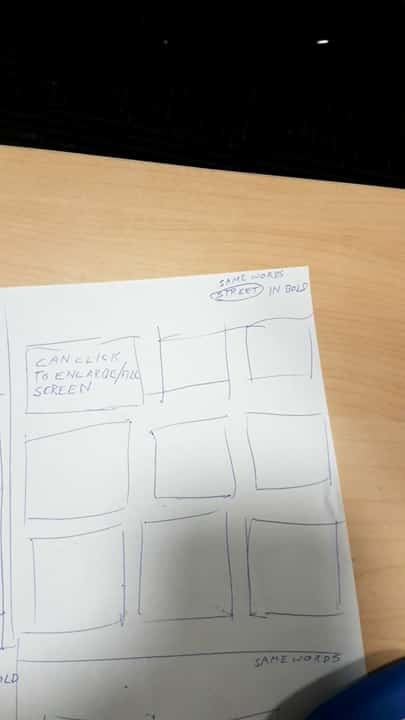 SAME WORDS
STREET IN BOLD
CAN CLICK
TO ENLARGE/FILL
SCREEN
SAME WORDS
OLD